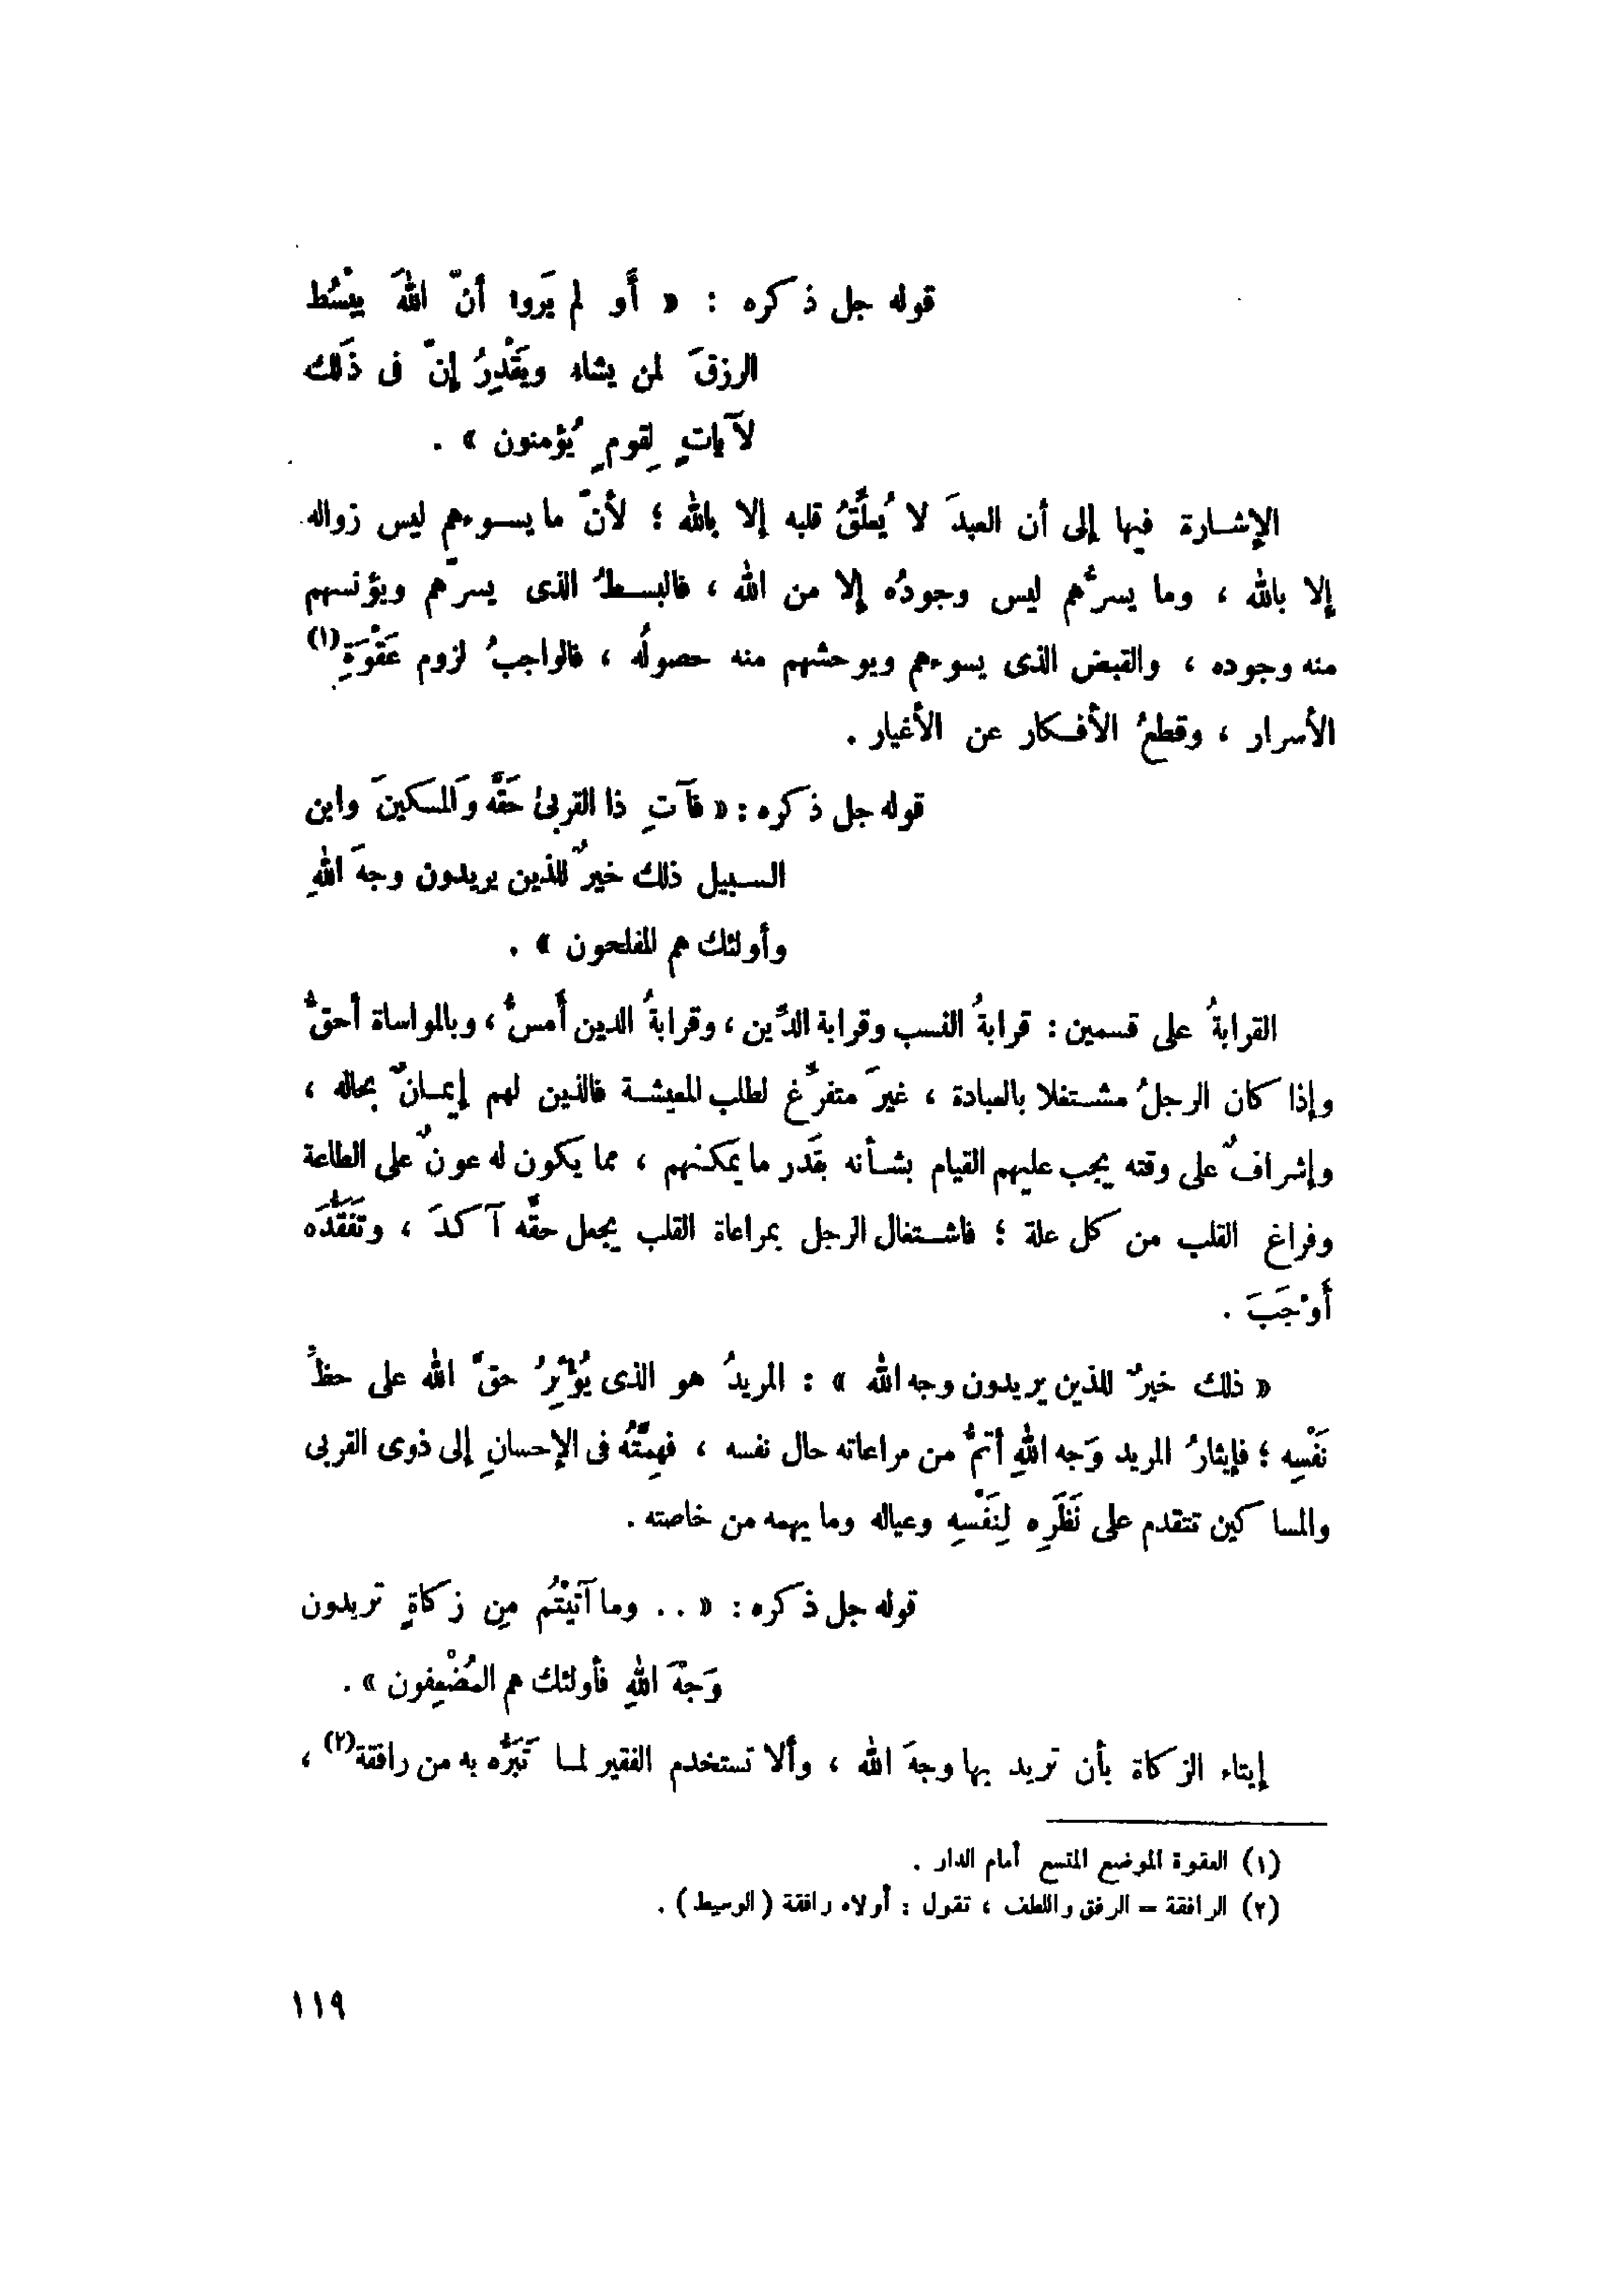 قوله جل ذكره : « أَو لم يَروا أنّ اللهَ يبْسُط
الرزقَ لمن يشاء ويَقْدِرُ إنّ فى ذَلك
لآياتٍ لِقومٍ يُؤمنون » .
الإشارة فيها إلى أن العبدَ لا يُعلِّقُ قلبه إلا بالله ؛ لأنّ ما يسوءهم ليس زواله
إلا بالله ، وما يسرُّهم ليس وجودُه إلا من الله ، فالبسطُ الذى يسرّهم ويؤنسهم
منه وجوده ، والقبض الذى يسوءهم ويوحشهم منه حصولُه ، فالواجبُ لزوم عَقْوَةِ(١)
الأسرار ، وقطعُ الأفكار عن الأغيار .
قوله جل ذكره : « فآتِ ذا القربىٰ حَقَّه وَالمسكينَ وابن
السبيل ذلك خيرٌ للذين يريدون وجهَ اللهِ
وأولئك هم المفلحون » .
القرابةُ على قسمين : قرابةُ النسب وقرابة الدِّين ، وقرابةُ الدين أَمسُّ ، وبالمواساة أحقُّ
وإذا كان الرجلُ مشتغلا بالعبادة ، غيرَ متفرِّغ لطلب المعيشة فالذين لهم إيمانٌ بحاله ،
وإشرافٌ على وقته يجب عليهم القيام بشأنه بقَدر ما يمكنهم ، مما يكون له عونٌ على الطاعة
وفراغ القلب من كل علة ؛ فاشتغال الرجل بمراعاة القلب يجعل حقَّه آكدَ ، وتَفَقُّدَه
أَوْجَبَ .
« ذلك خيرٌ للذين يريدون وجه الله » : المريدُ هو الذى يُؤْثِرُ حقَّ الله على حظِّ
نَفْسِه ؛ فإيثارُ المريد وَجه اللهِ أتمُّ من مراعاته حال نفسه ، فهِمَّتُه فى الإحسانِ إلى ذوى القربى
والمساكين تتقدم على نَظَرِه لِنَفْسِهِ وعياله وما يهمه من خاصته .
قوله جل ذكره : « .. وما آتَيْتُم مِن زكاةٍ تريدون
وَجْهَ اللهِ فأولئك هم المُضْعِفون » .
إيتاء الزكاة بأن تريد بها وجهَ الله ، وألا تستخدم الفقير لما تَبَرُّه به من رافقة(٢) ،
(١) العقوة الموضع المتسع أمام الدار .
(٢) الرافقة = الرفق واللطف ، تقول : أولاه رافقة ( الوسيط ) .
١١٩